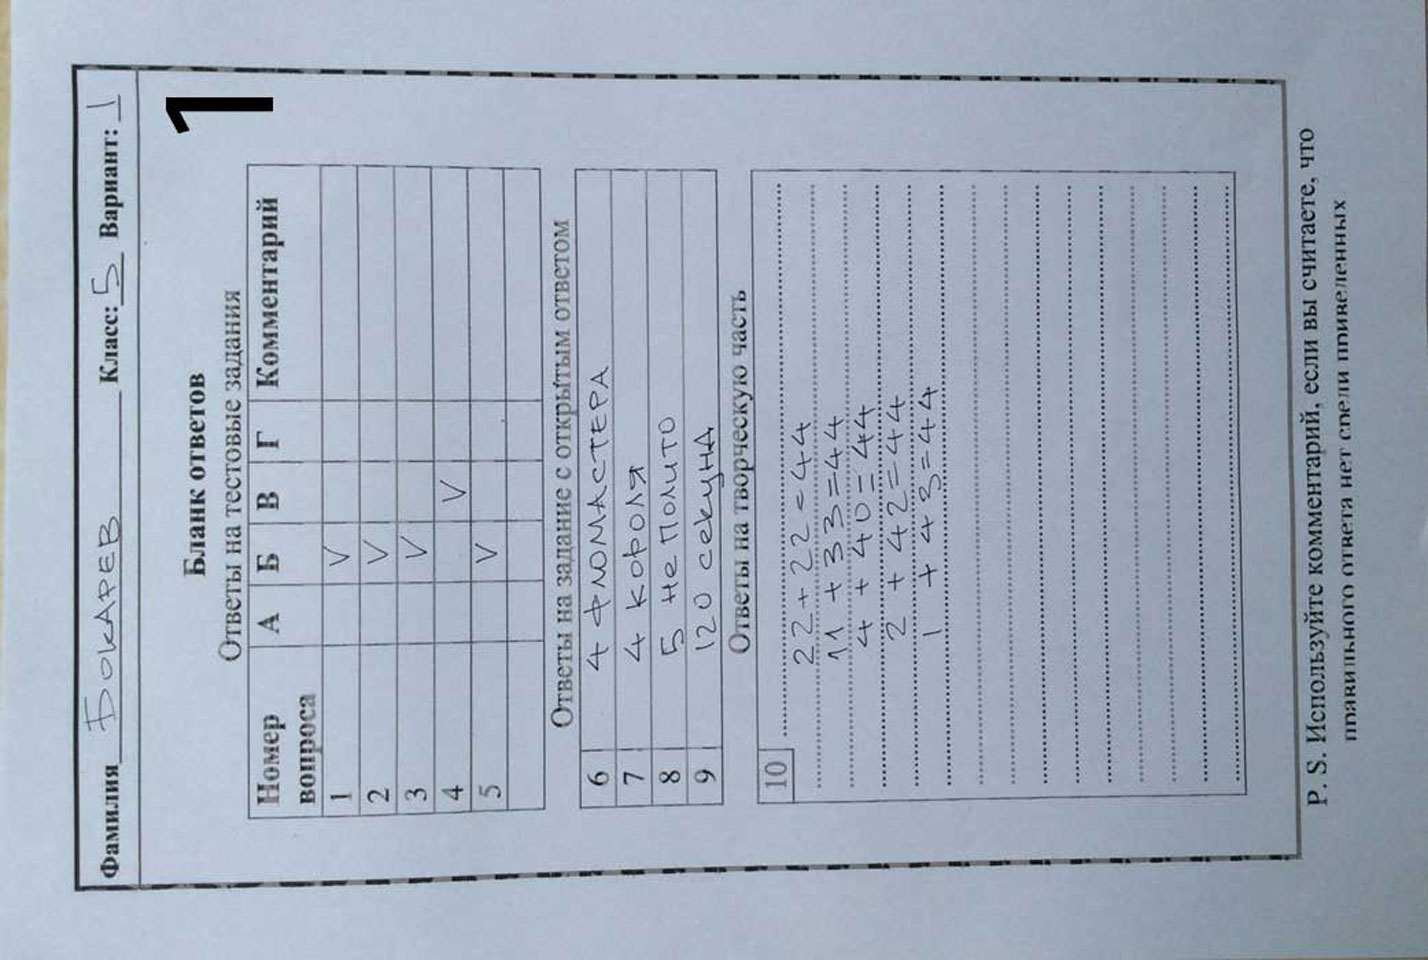 Фамилия БОКАРЕВ Класс: 5 Вариант: 1
1
Бланк ответов
Ответы на тестовые задания
Номер вопроса А Б В Г Комментарий
1 V
2 V
3 V
4 V
5 V
Ответы на задание с открытым ответом
6 4 ФЛОМАСТЕРА
7 4 КОРОЛЯ
8 5 НЕ ПОЛИТО
9 120 секунд
Ответы на творческую часть
10
22+22=44
11+33=44
4+40=44
2+42=44
1+43=44
P. S. Используйте комментарий, если вы считаете, что
правильного ответа нет среди приведенных